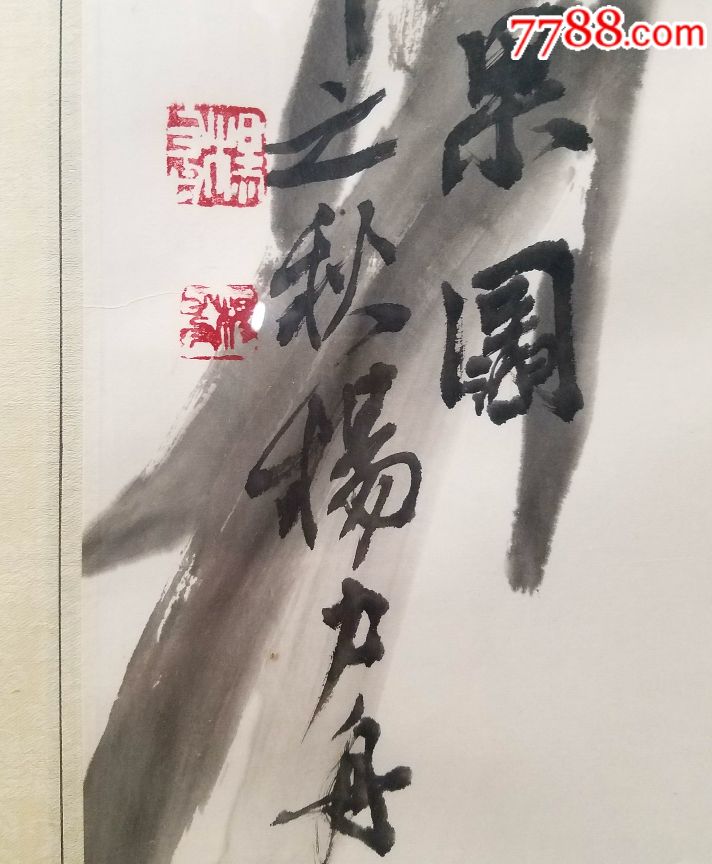 7788.com
果園
之秋楊力舟